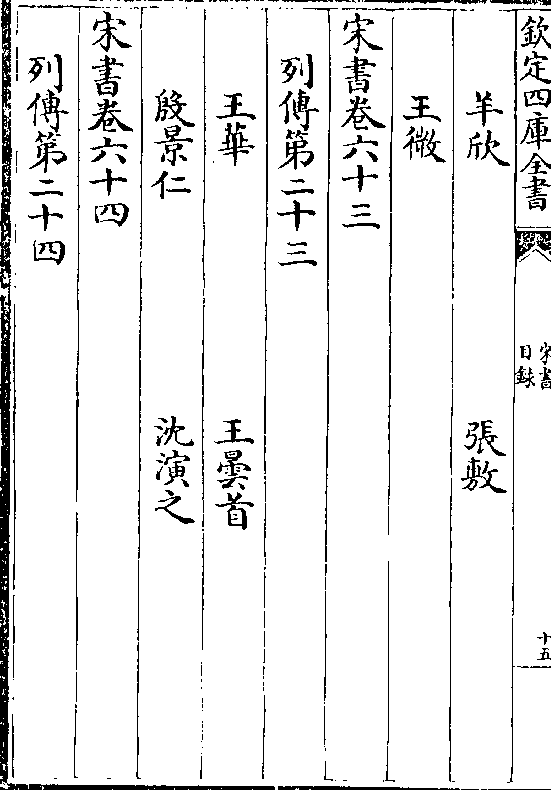 欽定四庫全書
宋書
目録
十五
羊欣　張敷
王微
宋書卷六十三
列傳第二十三
王華　王曇首
殷景仁　沈演之
宋書卷六十四
列傳第二十四